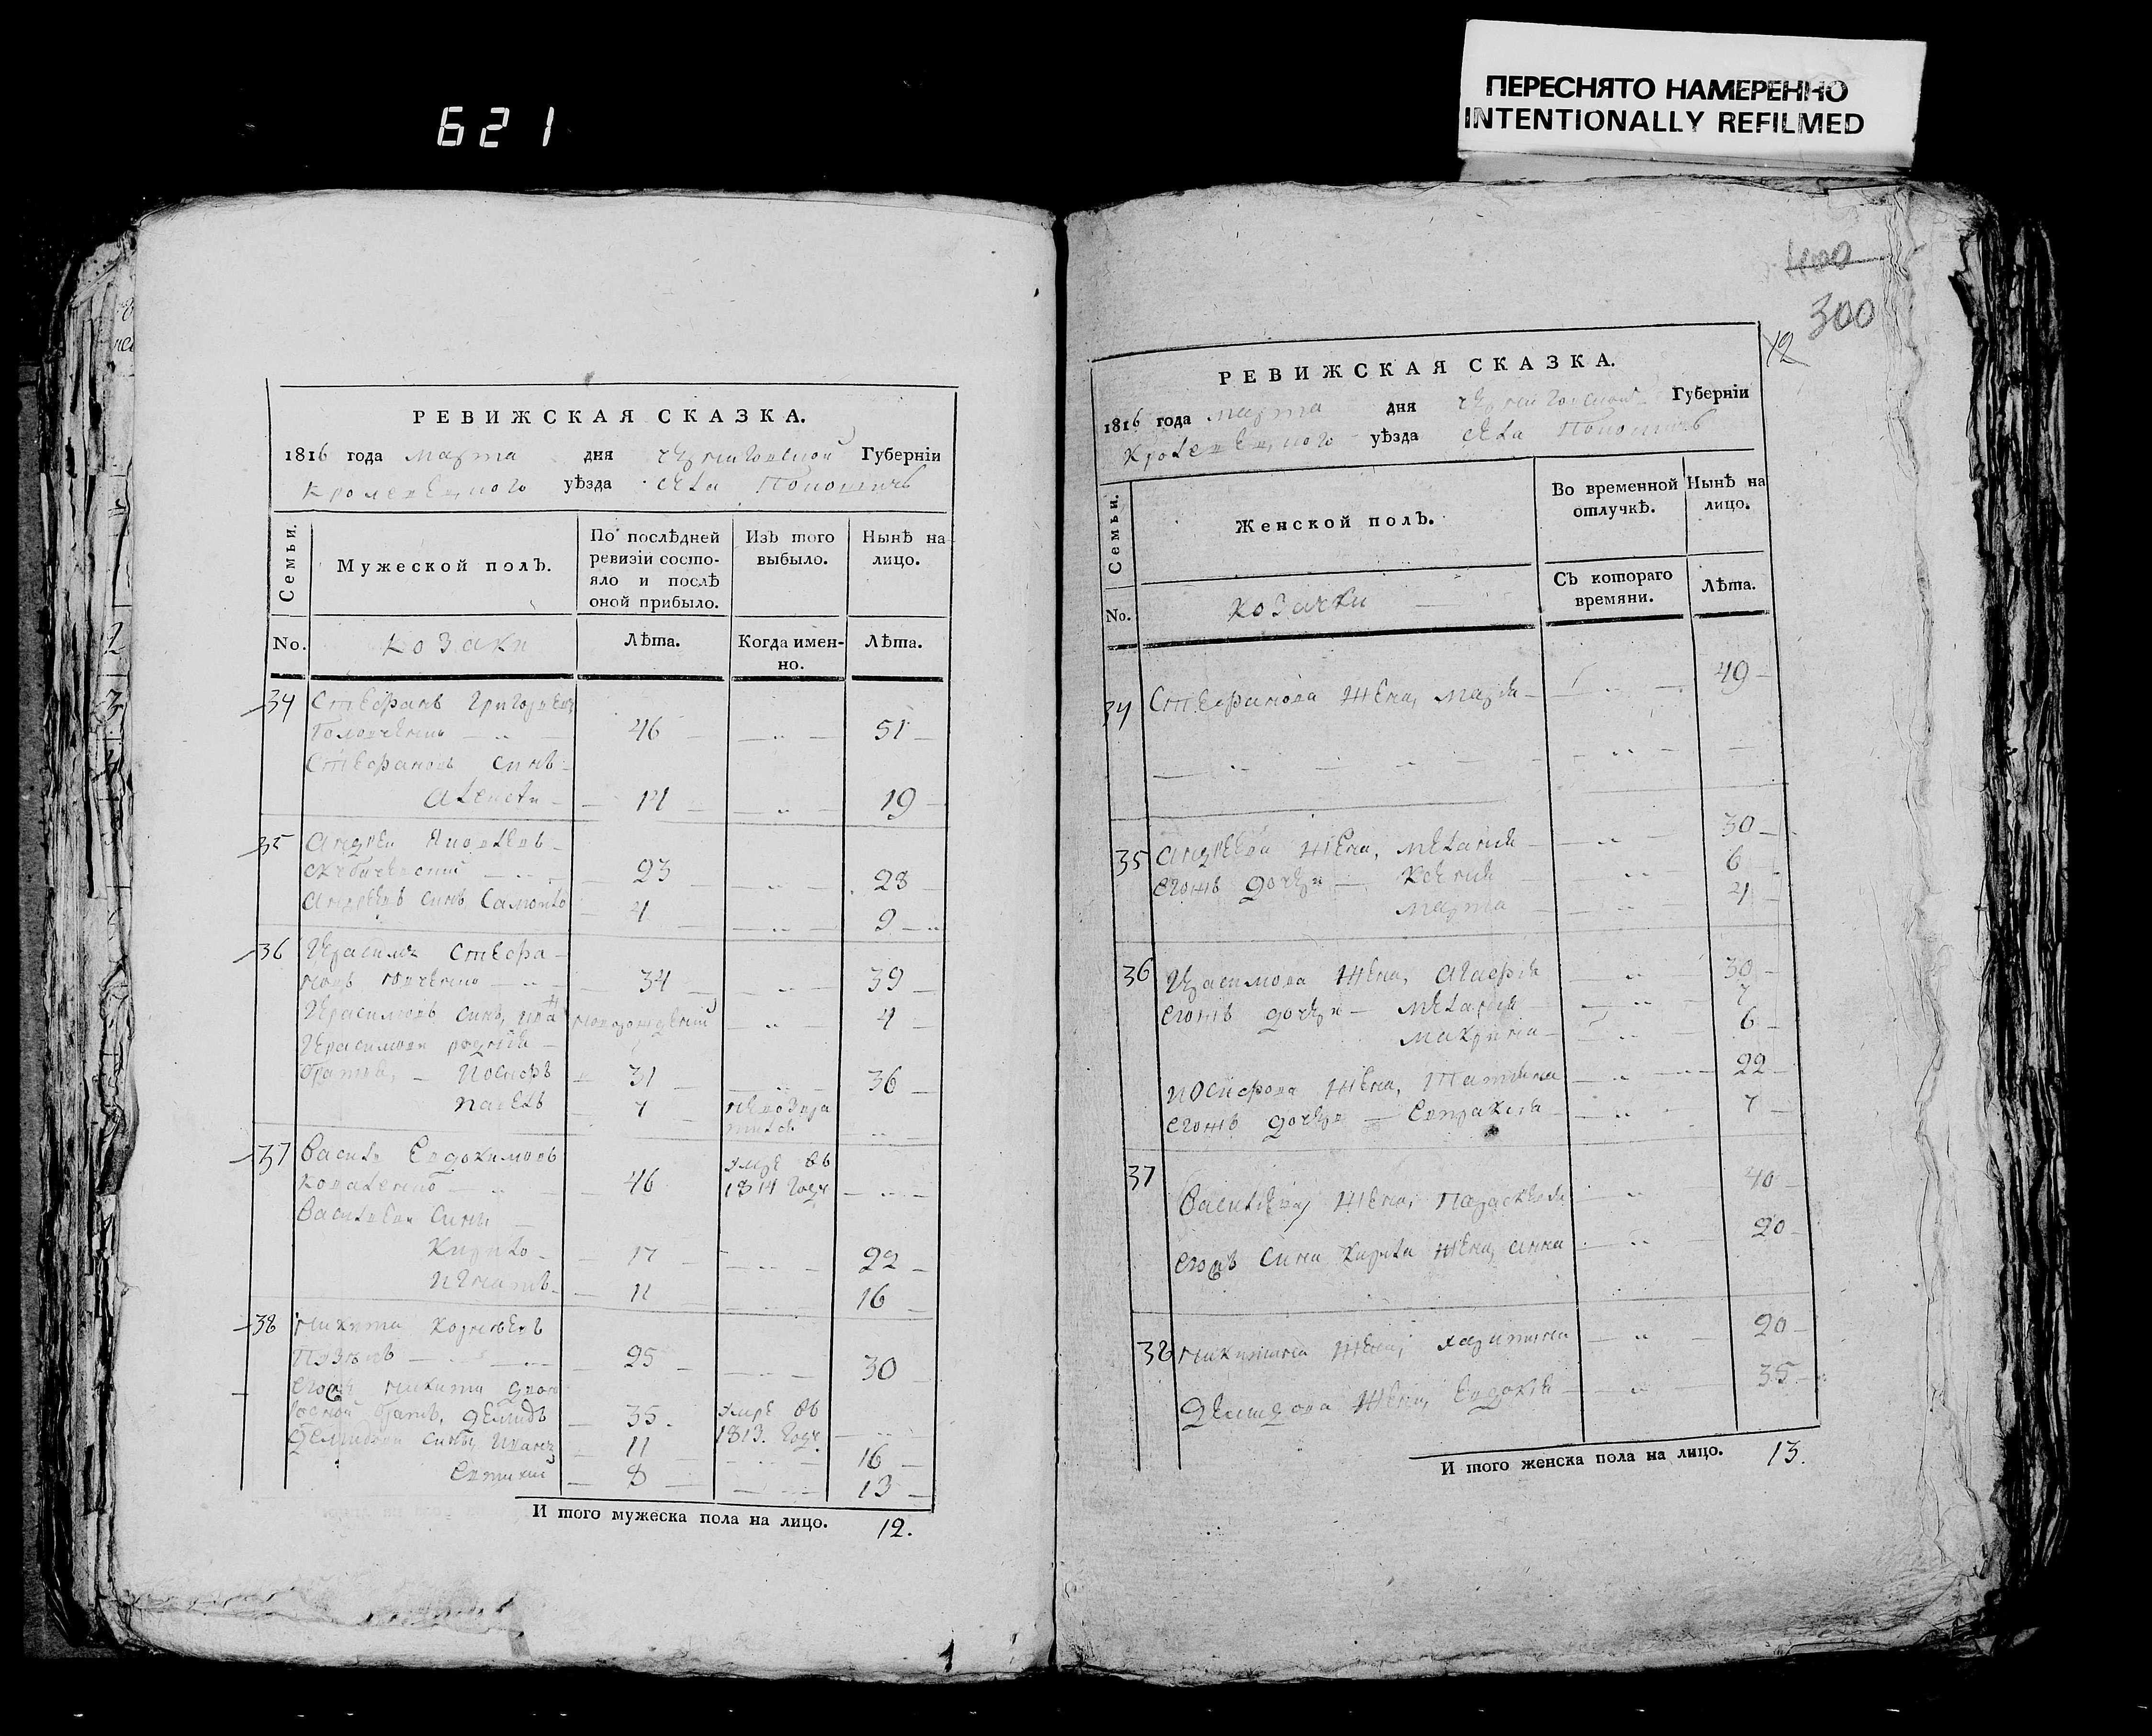 621
ПЕРЕСНЯТО НАМЕРЕННО
INTENTIONALLY REFILMED
РЕВИЖСКАЯ СКАЗКА.
1816 года марта дня Черниговской Губернїи
Кролевецкого уѣзда села
Семьи.
Мужеской полъ.
По послѣдней ревизіи состо-
яло и послѣ
оной прибыло.
Изъ того
выбыло.
Нынѣ на
лицо.
No.
козаки
Лѣта.
Когда имен-
но.
Лѣта.
34 Стефанъ Григориевъ
46 51
Стефановъ синъ
Алексѣи 14 19
35 Андрей Яковлевъ
23 28
Андреевъ синъ Самойло 4 9
36 Герасимъ Стефа-
новъ 34 39
Герасимовъ синъ, новорожденний 4
Герасимови
братя, Иосифъ 31 36
Павелъ 7
37 Василь Евдокимовъ
Коваленко 46 умре въ 1814 году
Василеви сини
Кирило 17 22
Игнатъ 11 16
38 Никита Корнѣевъ
25 30
Никити
братъ, Демидъ 35 умре въ 1813 году
Демидови сини, Иванъ 11 16
Евтихий 8 13
И того мужеска пола на лицо. 12.
400
300
12
РЕВИЖСКАЯ СКАЗКА.
1816 года марта дня Черниговской Губернїи
Кролевецкого уѣзда села
Семьи.
Женской полъ.
Во временной
отлучкѣ.
Нынѣ на
лицо.
No.
козачки
Съ котораго
времяни.
Лѣта.
34 Стефанова жена, Марія 49
35 Андреева жена, Меланія 30
егожъ дочери Ксенія 6
Марта 4
36 Герасимова жена, Агафія 30
егожъ дочери 7
Макрина 6
Иосифова жена, Татияна 22
егожъ дочери Евпраксія 7
37 Василиева жена, Параскевія 40
сина Кирила жена, Анна 20
38 Никитина жена, Харитина 20
Демидова жена, Евдокія 35
И того женска пола на лицо. 13.